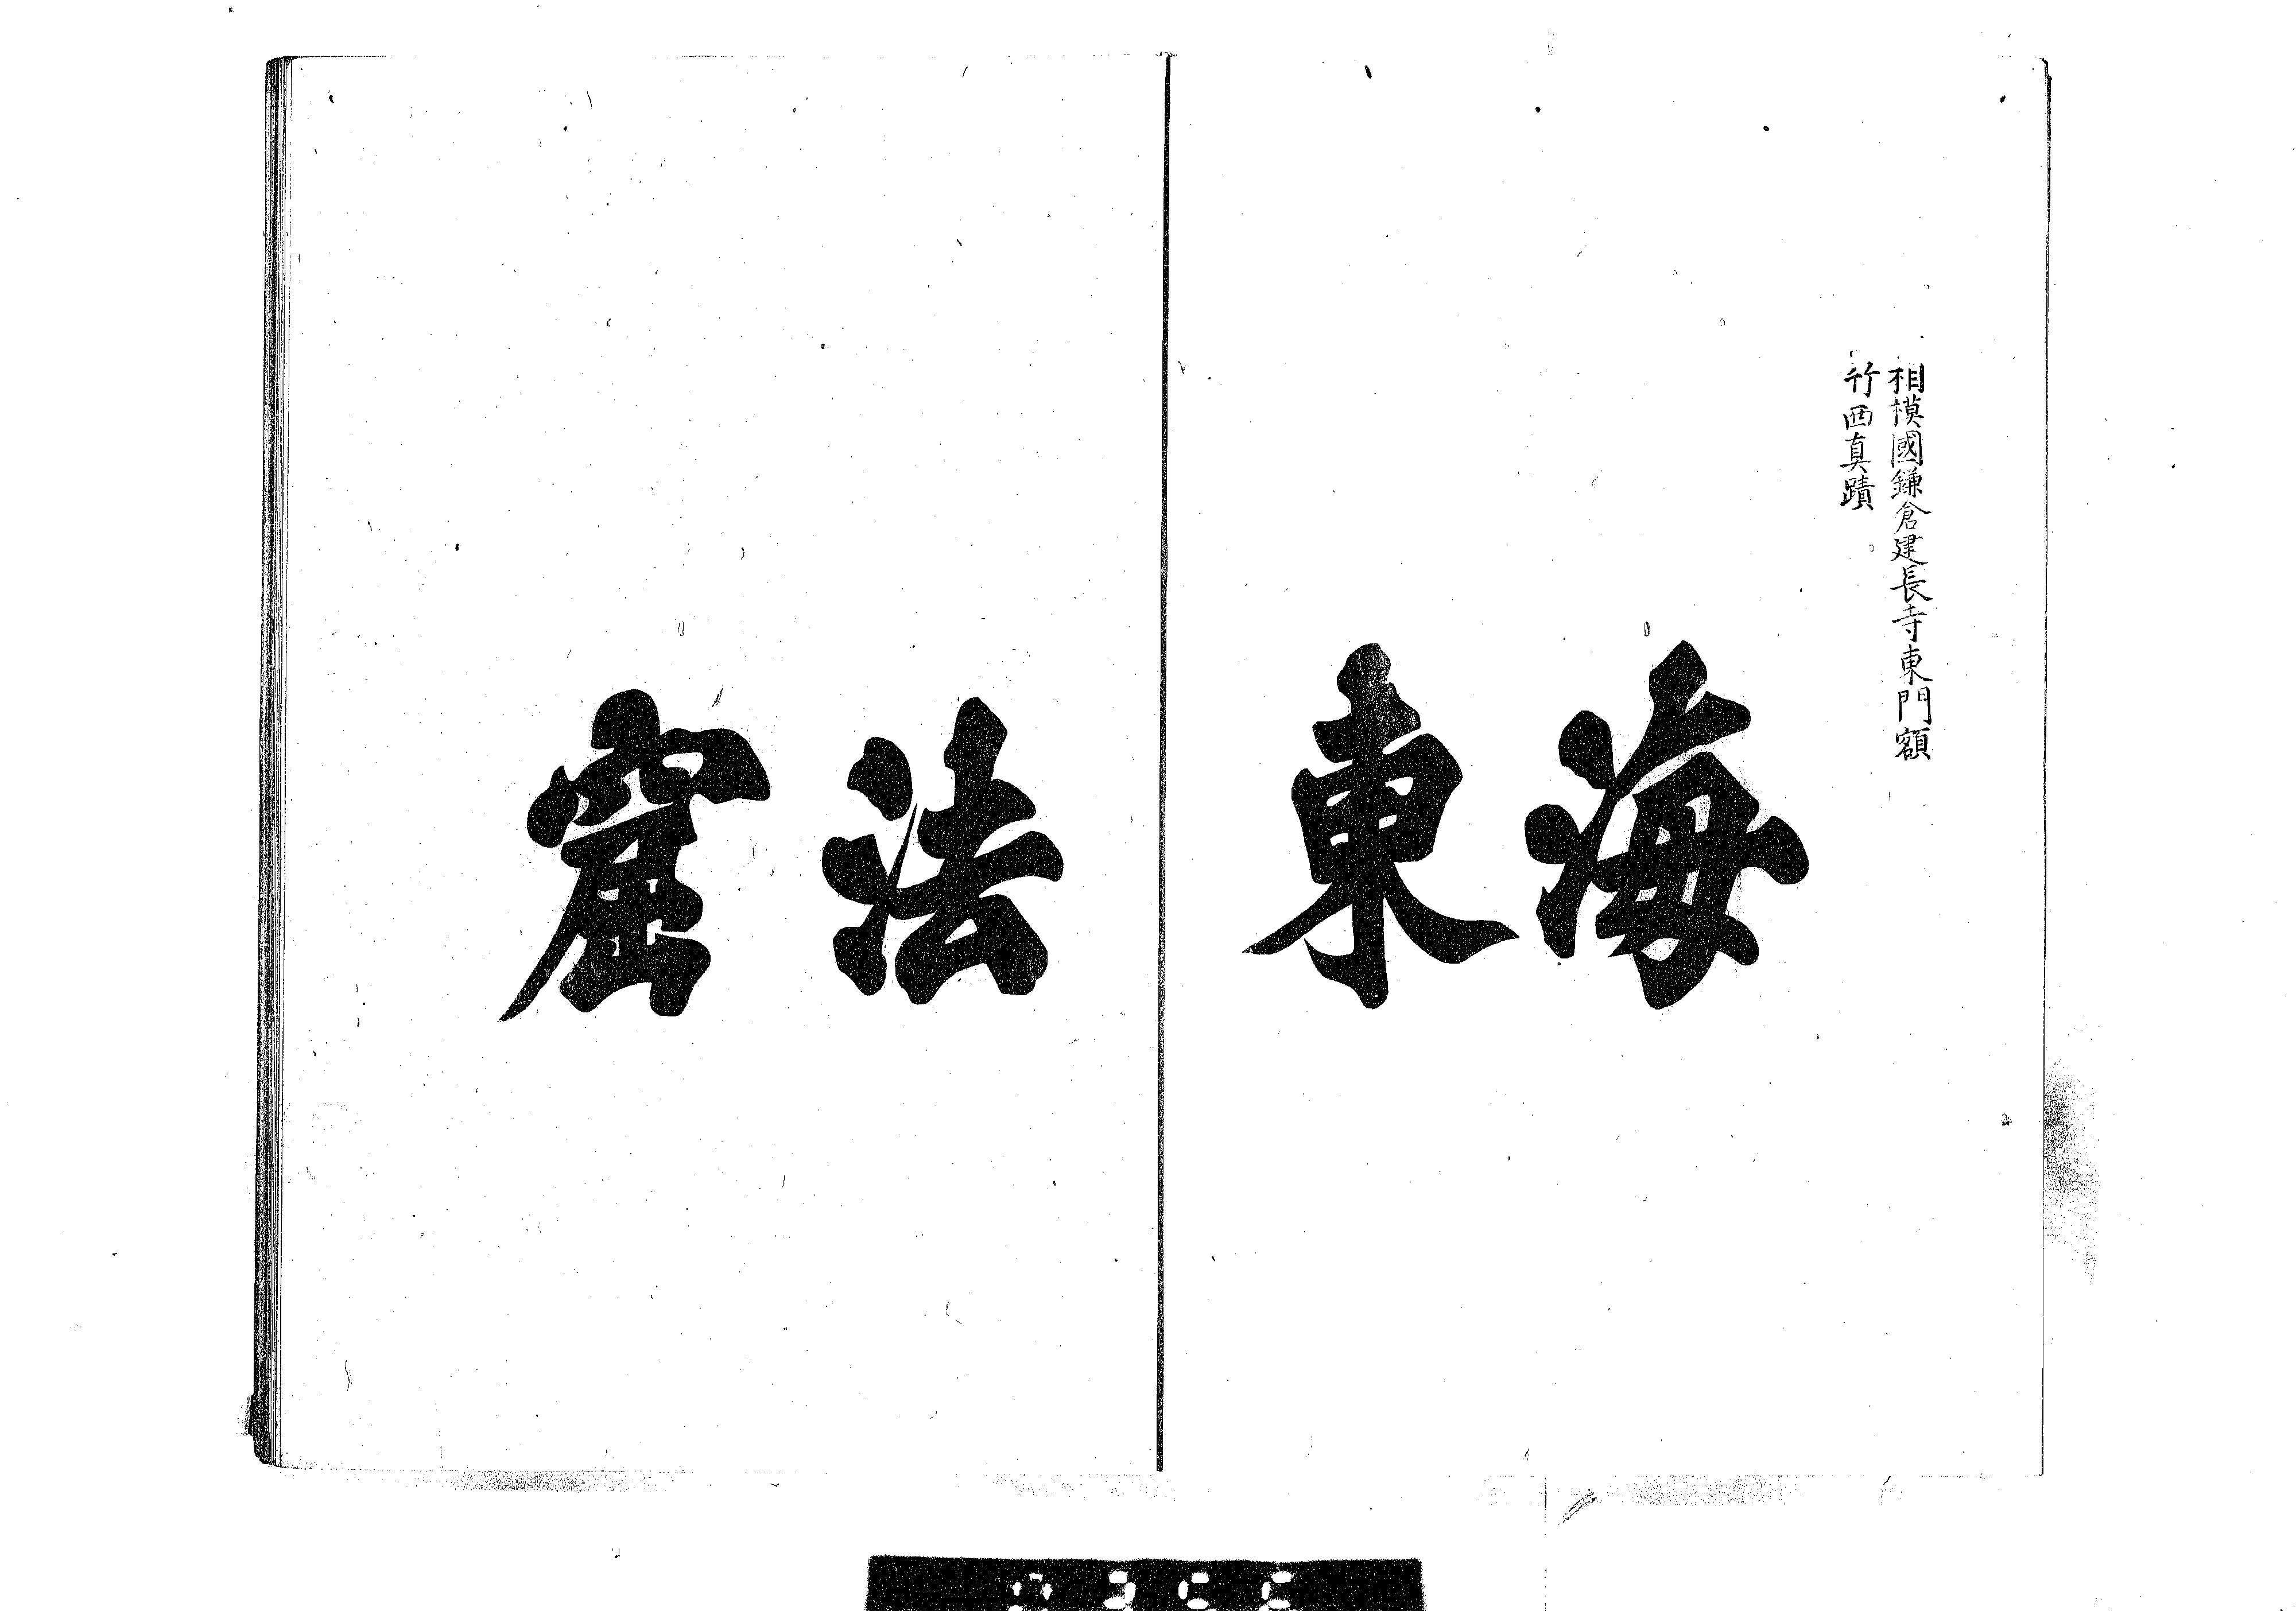 相模國鎌倉建長寺東門額
竹西真蹟
海東法窟